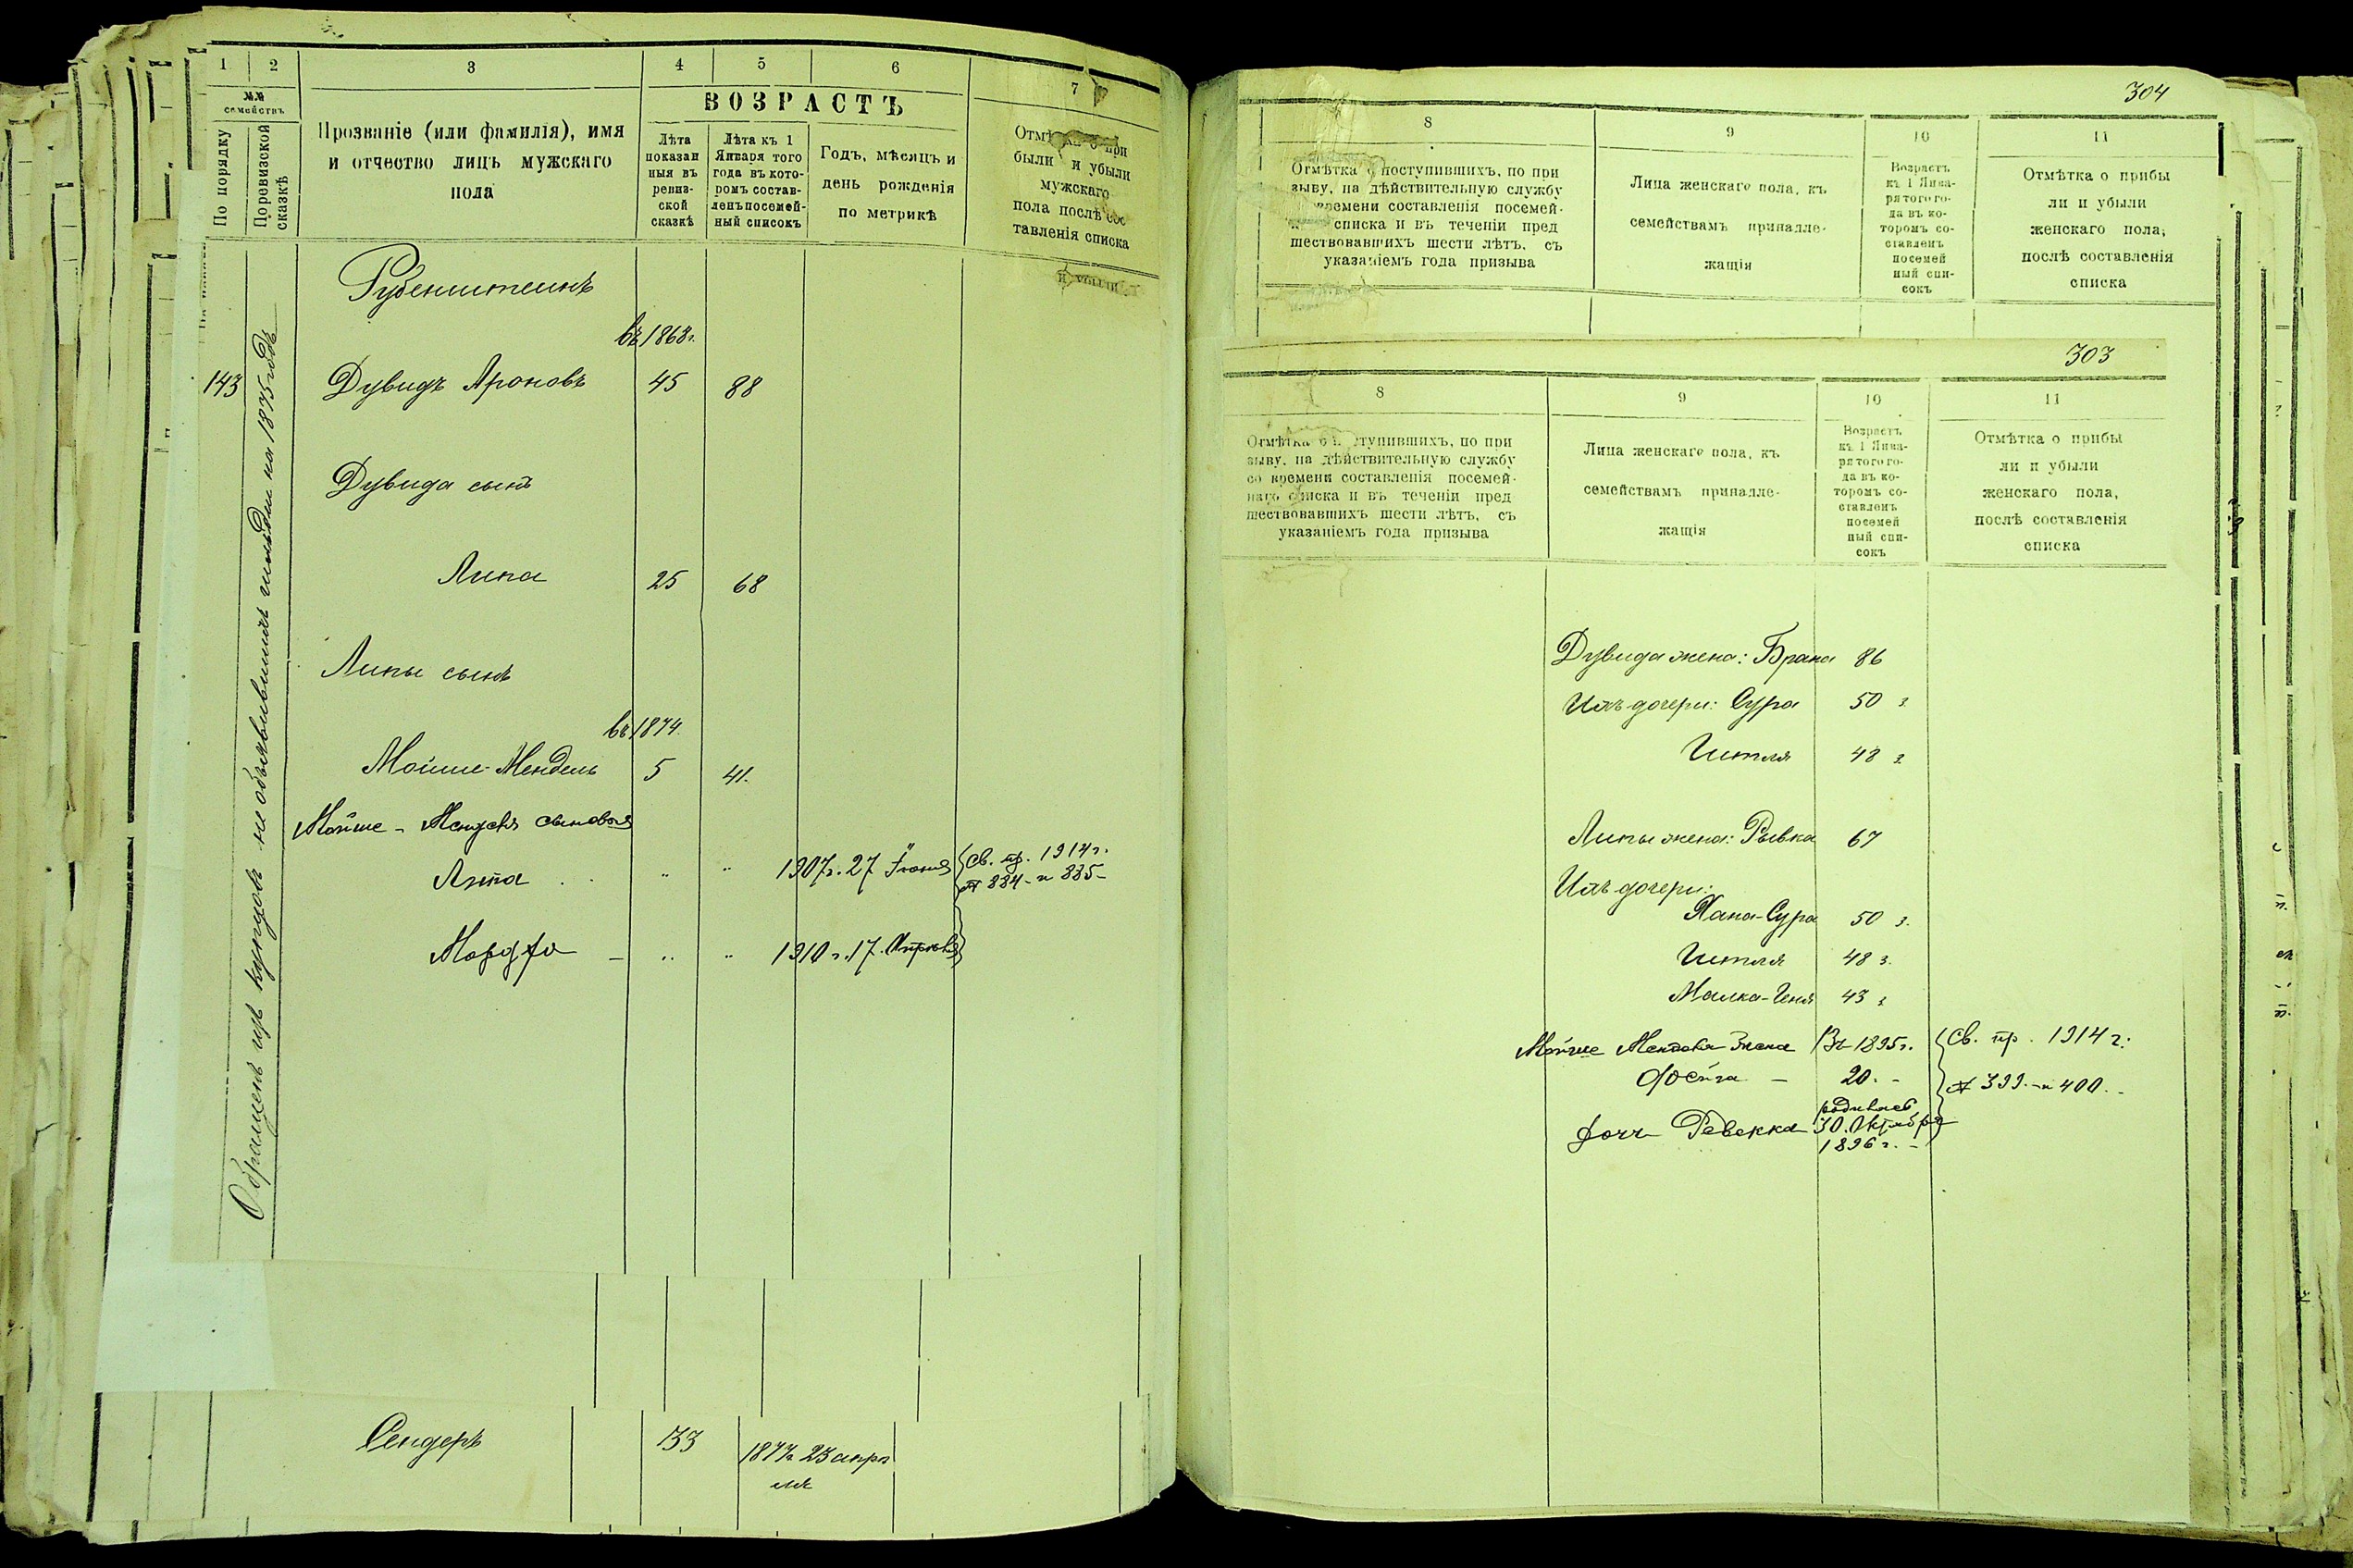 1 2 3 4 5 6 7
№№ семействъ
По порядку
По ревизской сказкѣ
Прозваніе (или фамилія), имя
и отчество лицъ мужскаго
пола
ВОЗРАСТЪ
Лѣта
показан
ныя въ
ревиз-
ской
сказкѣ
Лѣта къ 1
Января того
года въ кото-
ромъ состав-
ленъ посемей-
ный списокъ
Годъ, мѣсяцъ и
день рожденія
по метрикѣ
были и убыли
мужскаго
пола послѣ сос
тавленія списка
Рубенштейнъ
въ 1868г.
143 Дувидъ Ароновъ 45 88
Дувида сынъ
Липа 25 68
Липы сынъ
въ 1874
Мойше-Мендель 5 41.
Мойше - Менделя сыновья
1907г. 27 Іюня Св. пр. 1914г.
№ 884 - и 885-
1910 г. 17. Апрѣля
Обращенъ изъ купцовъ не объявившихъ гильдіи на 1875 годъ
Сендеръ 33 1877г 23 апрѣ
ля
304
8 9 10 11
Отмѣтка о поступившихъ, по при
зыву, на дѣйствительную службу
времени составленія посемей-
списка и въ теченіи пред
шествовавшихъ шести лѣтъ, съ
указаніемъ года призыва
Лица женскаго пола, къ
семействамъ принадле-
жащія
Возрастъ
къ 1 Янва-
ря того го-
да въ ко-
торомъ со-
ставленъ
посемей
ный спи-
сокъ
Отмѣтка о прибы
ли и убыли
женскаго пола,
послѣ составленія
списка
303
8 9 10 11
Отмѣтка о ступившихъ, по при
зыву, на дѣйствительную службу
со времени составленія посемей-
наго списка и въ теченіи пред
шествовавшихъ шести лѣтъ, съ
указаніемъ года призыва
Лица женскаго пола, къ
семействамъ принадле-
жащія
Возрастъ
къ 1 Янва-
ря того го-
да въ ко-
торомъ со-
ставленъ
посемей
ный спи-
сокъ
Отмѣтка о прибы
ли и убыли
женскаго пола,
послѣ составленія
списка
Дувида жена: Брана 86
Ихъ дочери: Сура 50 з.
Гитля 48 з.
Липы жена: Рывка 67
Ихъ дочери:
Хана-Сура 50 з.
Гитля 48 з.
Малка-Геня 43 з.
Мойше Менделя жена Въ 1895г. Св. пр. 1914 г.
Фейга - 20. - № 399.-и 400.-
родилась
дочь Ревекка 30. Октября
1896 г. -